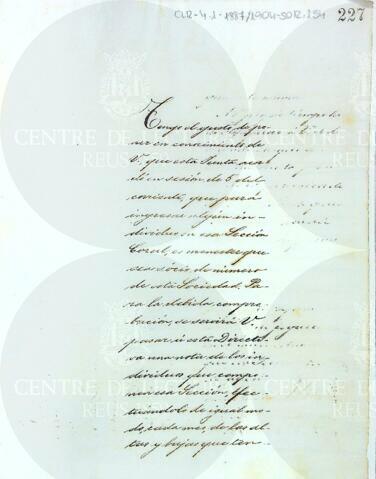 CLR-4.1-1887/1904-SOR.254
227
CENTRE DE LECTURA
REUS
Tengo el gusto de po-
ner en conocimiento de
V. que esta Junta acor-
dó en sesión de 5 del
corriente, que para
ingresar algún in-
dividuo en esa Sección
Coral, es menester que
sea sócio de número
de esta Sociedad. Pa-
ra la debida compro-
bación, se servirá V.
pasar á esta Directi-
va una nota de los in-
dividuos que compo-
nen esa Sección, efec-
tuándolo de igual mo-
do, cada mes, de las al-
tas y bajas que ten-
CENTRE DE LECTURA
REUS